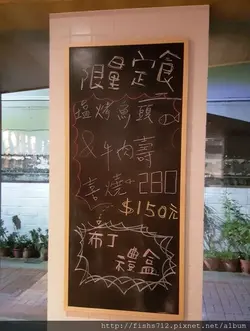 限量定食
塩烤魚頭
&牛肉壽
喜燒 280
$150元
布丁
禮盒
http://fisha712.pixnet.net/album